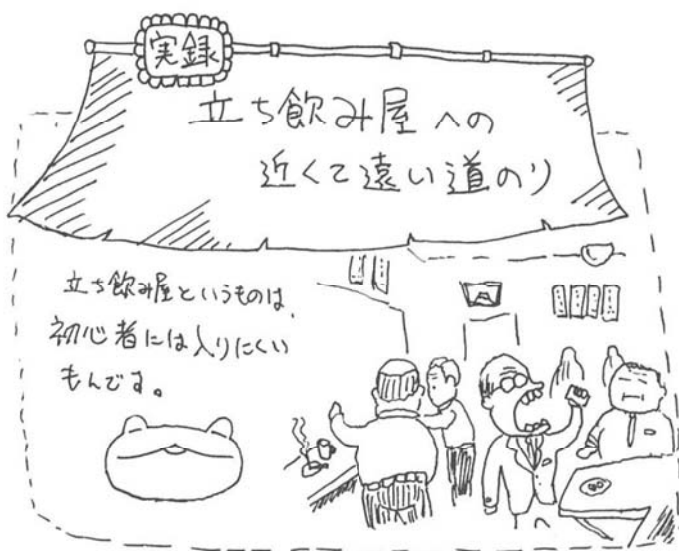 実録
立ち飲み屋への
近くて遠い道のり
立ち飲み屋というものは、
初心者には入りにくい
もんです。